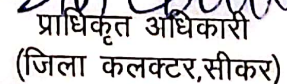 प्राधिकृत अधिकारी
(जिला कलक्टर,सीकर)